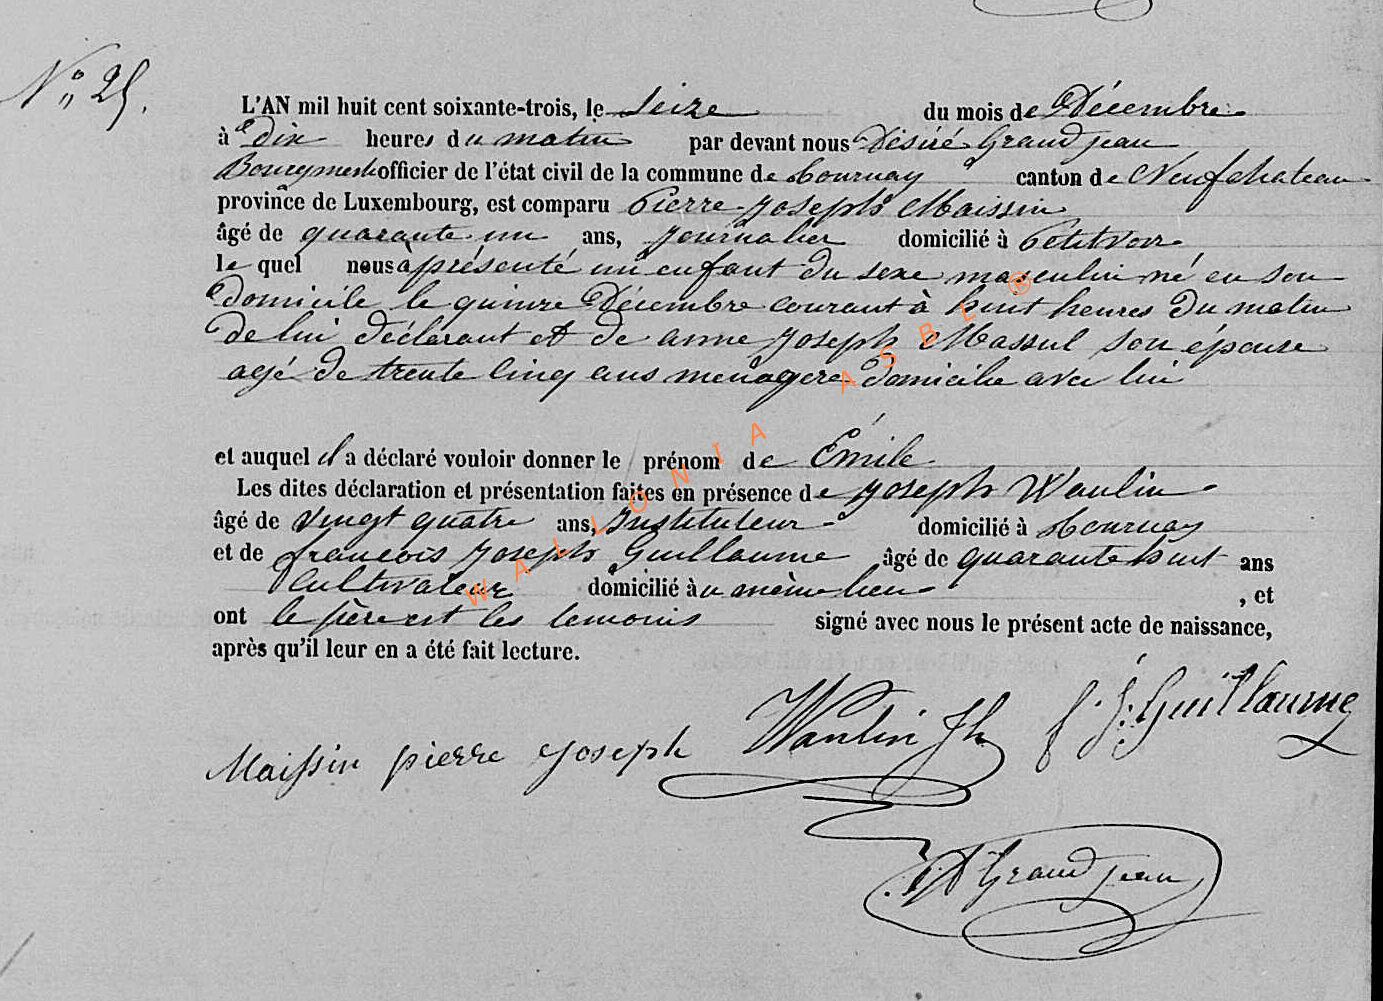 N° 25.
L'AN mil huit cent soixante-trois, le Seize du mois de Décembre
à Dix heures du matin par devant nous Désiré Grandjean
Bourgmestre officier de l'état civil de la commune de Tournay canton de Neufchateau
province de Luxembourg, est comparu Pierre Joseph Maissin
âgé de quarante un ans, Journalier domicilié à Petitvoir
le quel nous à présenté un enfant du sexe masculin né en son
domicile le quinze Décembre courant à huit heures du matin
de lui déclarant et de anne Joseph Massul son épouse
agé de trente Cinq ans menagere domicilie avec lui
et auquel il a déclaré vouloir donner le prénom de Émile
Les dites déclaration et présentation faites en présence de Joseph Wanlin
âgé de vingt quatre ans, Instituteur domicilié à Tournay
et de francois Joseph Guillaume âgé de quarante huit ans
Cultivateur domicilié au même lieu , et
ont le père et les temoins signé avec nous le présent acte de naissance,
après qu'il leur en a été fait lecture.
Maissin pierre Joseph Wanlin Jh f. J. Guillaume
D Grandjean
WALLONIA ASBL ®